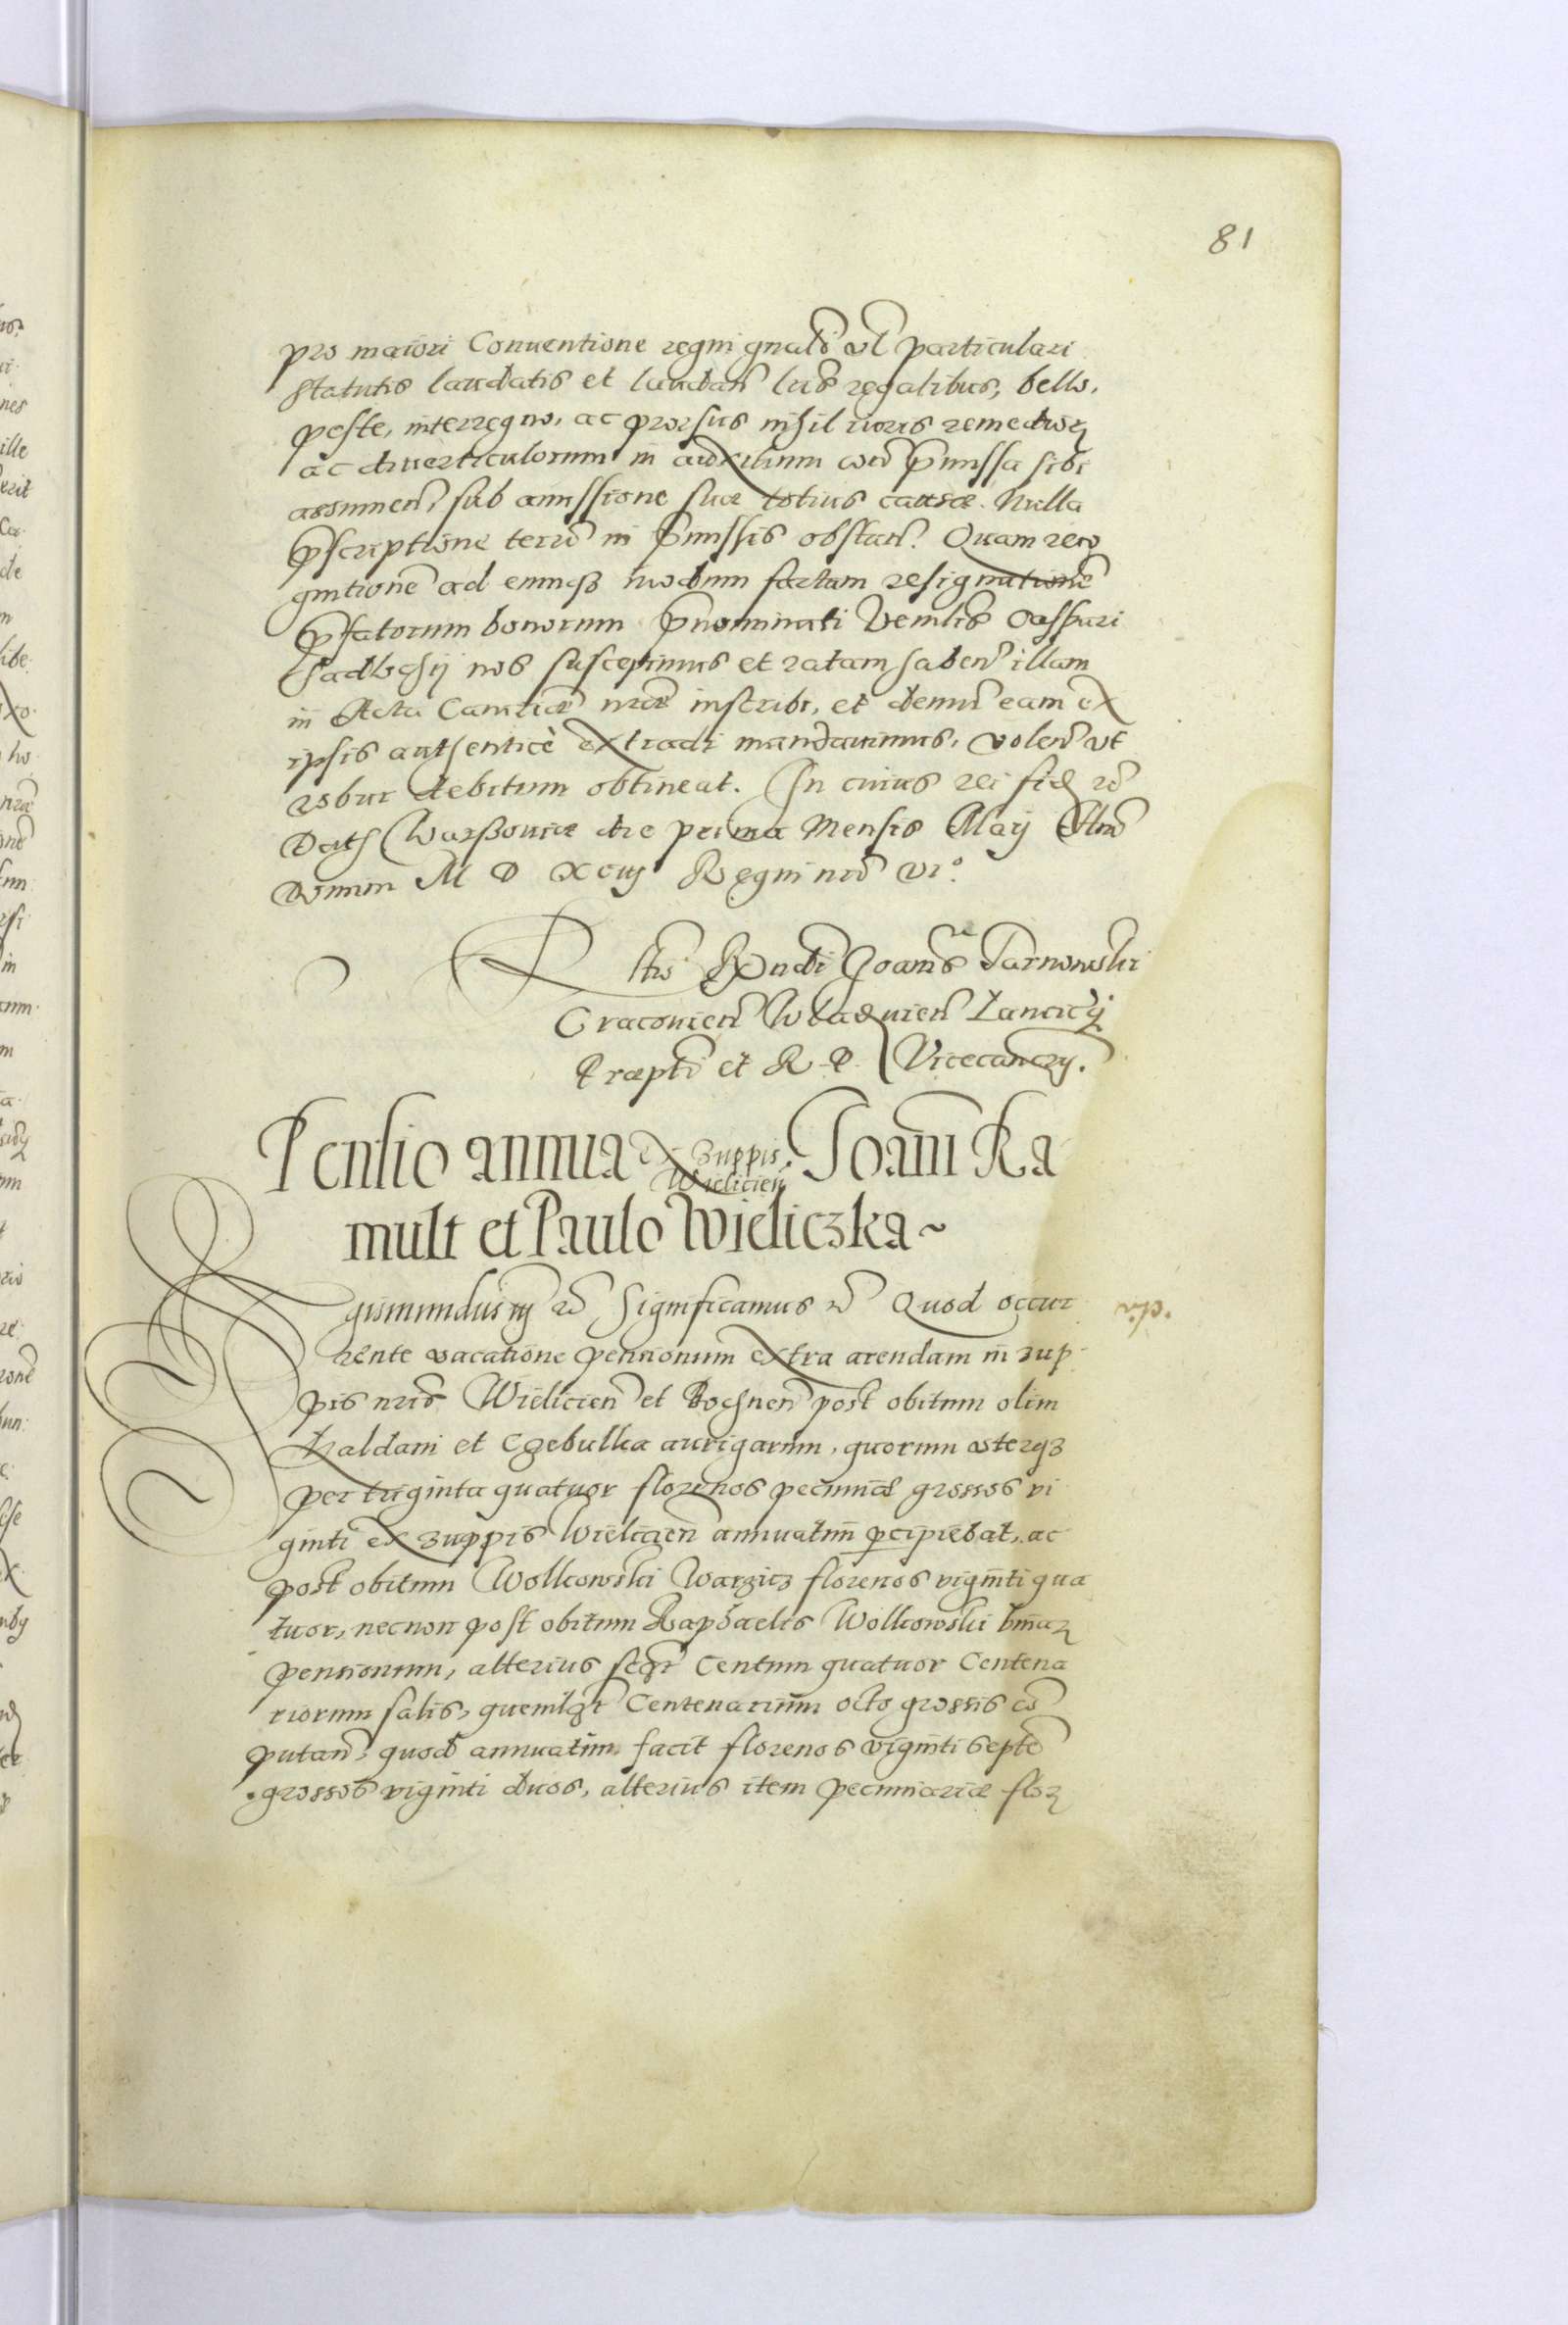 81
pro maiori Conuentione regni gnali vl particulari
statutis laudatis et laudan lris regalibus, bello,
peste, interregno, ac prorsus nihil iuris remediorz
ac diuerticulorum in auxilium cora pmissa sibi
assumen, sub amissione suæ totius causæ. Nulla
pscriptione terre in pmissis obstan. Quam reco
gnitione ad eumqz modum factam resignatione
pfatorum bonorum pnominati Venlis Casspari
Sadlochij nos suscepimus et ratam haben illam
in Acta Canrię nræ inscribi, et demu eam ex
ipsis authenticè extradi mandauimus, volen vt
robur debitum obtineat. In cuius rei fid rc
Dath Warssouiæ die prima Mensis Maij Ano
Domini M D XCiij Regni nri vi°.
Rltio Rndi Joanis Tarnowski
Cracouien Wladuien Lancicij
Præpti et R. P. Vicecanczy.
Pensio annua ex Zuppis Wielicien, Joani Ra
mult et Paulo Wieliczka ~
Sigismundus iij rc Significamus rc Quod occur
rente vacatione pensionum extra arendam in zup
pis nris Wielicien et Bochnen post obitum olim
Haldani et Czebulka aurigarum, quorum vterqz
per triginta quatuor florenos pecuniæ grossos vi
ginti ex zuppis Wielicien annuatim pcipiebat, ac
post obitum Wolkowski Warzicz florenos viginti qua
tuor, necnon post obitum Raphaelis Wolkowski binarz
pensionum, alterius sczt Centum quatuor Centena
riorum salis, quemlzt Centenarium octo grossis co
putan, quod annuatim facit florenos viginti septe
grossos viginti duos, alterius item pecuniariæ florz